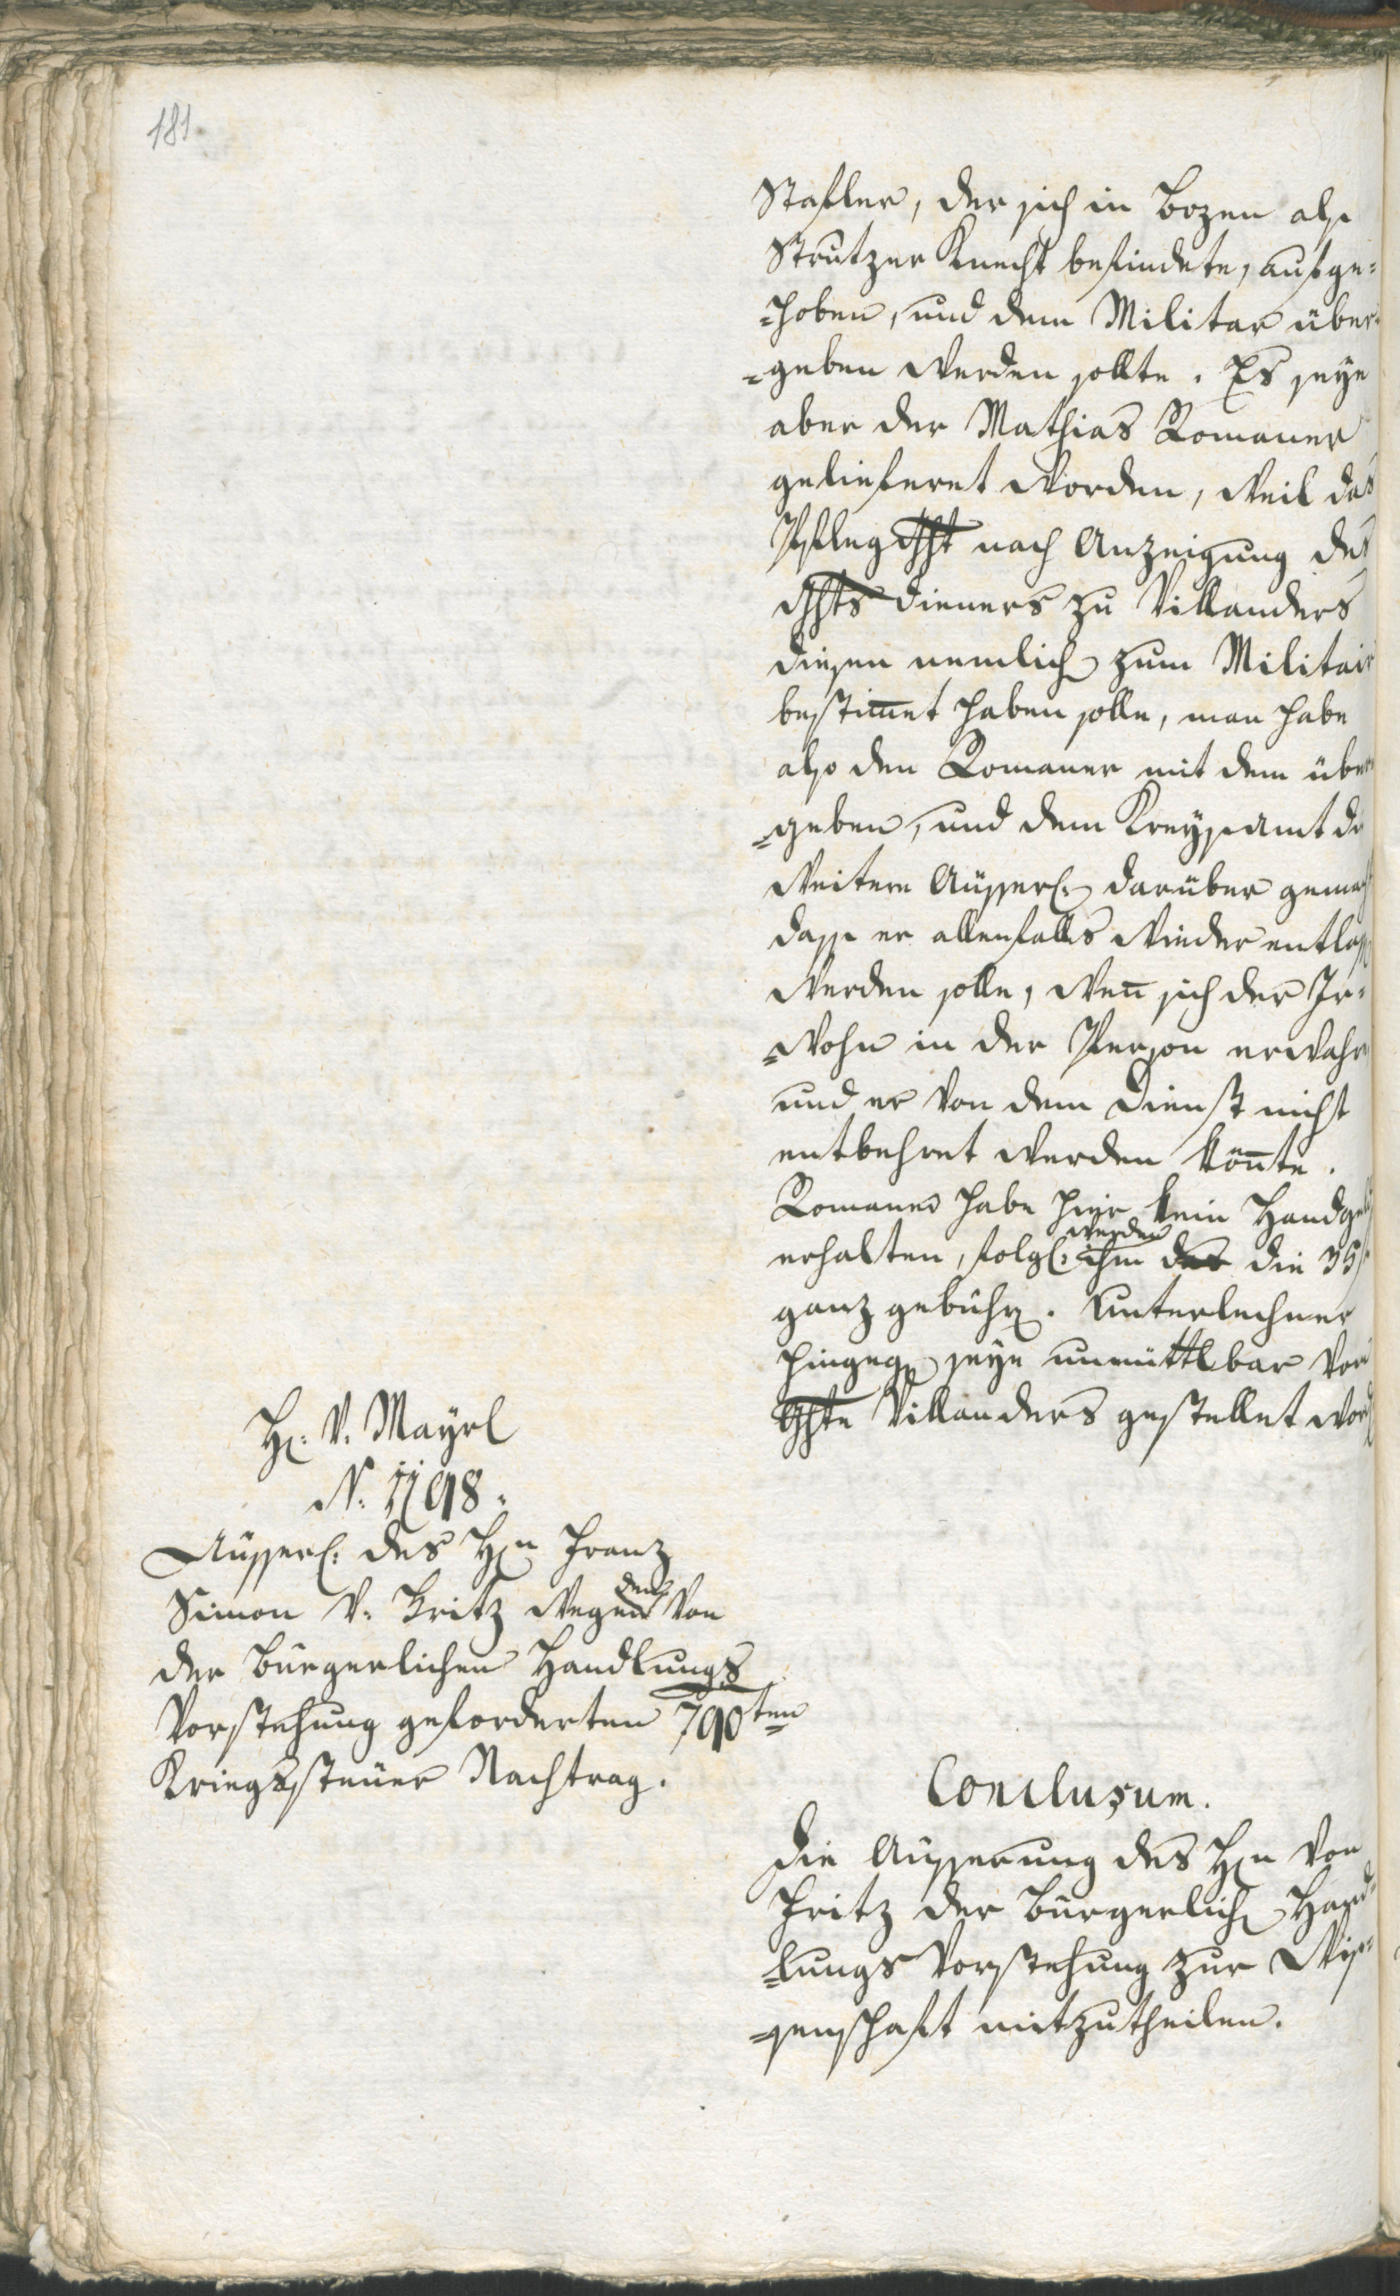 181.
Stafler, der sich in Bozen als
Strutzer Knecht befindete, aufge-
-hoben, und dem Militar über-
-geben werden sollte. Es seye
aber der Mathias Romaner
gelieferet worden, weil das
Pfleggcht nach Anzeigung des
Gchts dieners zu Villanders
diesen nemlich zum Militair
bestim̅et haben solle, man habe
also den Romaner mit dem über
-geben, und dem Kreysamt die
weitere Aüsserl. darüber gemacht
dass er allenfalls wieder entlass
werden solle, wen̅ sich der Ir-
-wohn in der Person erwahr
und er von dem Dienst nicht
entbehret werden kön̅te.
Romaner habe hier kein Handgeld
erhalten, folgl. ihm werden die 35 f
ganz gebühr. Unterlechner
hingeg seye unmittlbar von
Gchte Villanders gestellet word
H. v. Mayrl
N. 1198.
Aüsserl. des H.n Franz
Simon v. Fritz wegen den von
der bürgerlichen Handlungs
Vorstehung geforderten 790ten
Kriegssteüer Nachtrag.
Conclusum.
Die Aüsserung des H.n von
Fritz der bürgerlich Hand-
-lungs Vorstehung zur Wis-
-senschaft mitzutheilen.